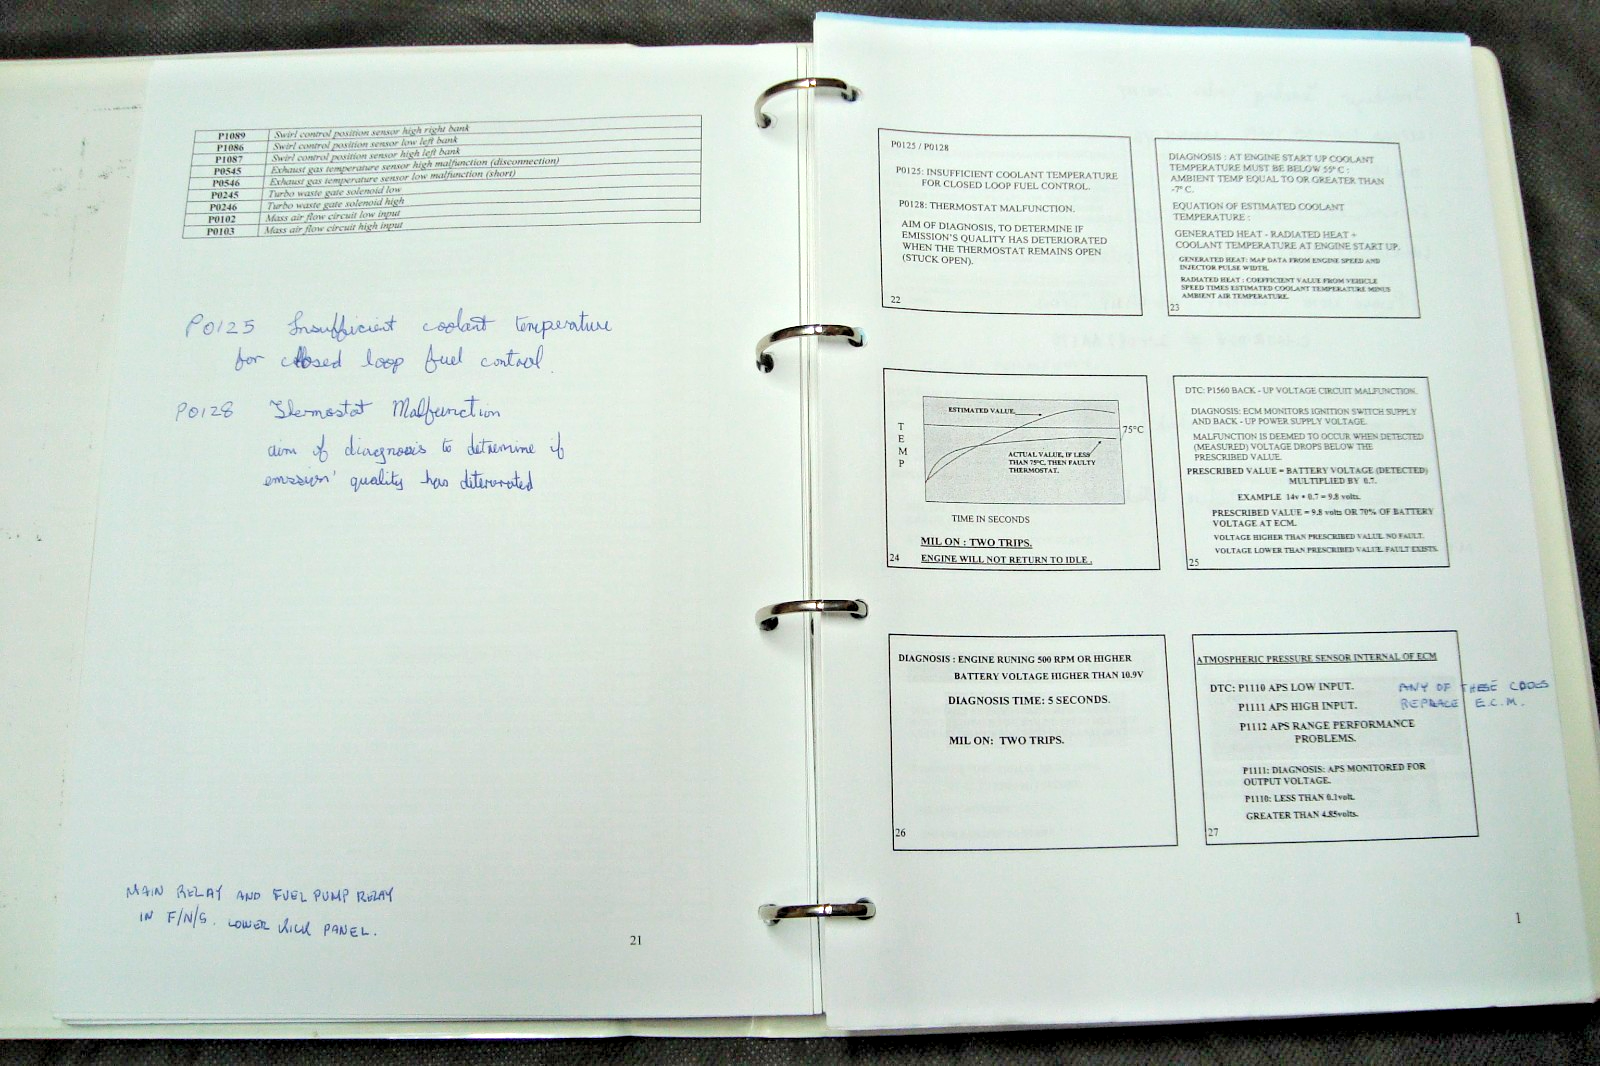 P1089 Swirl control position sensor high right bank
P1086 Swirl control position sensor low left bank
P1087 Swirl control position sensor high left bank
P0545 Exhaust gas temperature sensor high malfunction (disconnection)
P0546 Exhaust gas temperature sensor low malfunction (short)
P0245 Turbo waste gate solenoid low
P0246 Turbo waste gate solenoid high
P0102 Mass air flow circuit low input
P0103 Mass air flow circuit high input
P0125 Insufficient coolant temperature
for closed loop fuel control.
P0128 Thermostat Malfunction
aim of diagnosis to determine if
emission' quality has deterorated
MAIN RELAY AND FUEL PUMP RELAY
IN F/N/S. LOWER KICK PANEL.
21
P0125 / P0128
P0125: INSUFFICIENT COOLANT TEMPERATURE
FOR CLOSED LOOP FUEL CONTROL.
P0128: THERMOSTAT MALFUNCTION.
AIM OF DIAGNOSIS, TO DETERMINE IF
EMISSION'S QUALITY HAS DETERIORATED
WHEN THE THERMOSTAT REMAINS OPEN
(STUCK OPEN).
22
DIAGNOSIS : AT ENGINE START UP COOLANT
TEMPERATURE MUST BE BELOW 55° C :
AMBIENT TEMP EQUAL TO OR GREATER THAN
-7° C.
EQUATION OF ESTIMATED COOLANT
TEMPERATURE :
GENERATED HEAT - RADIATED HEAT +
COOLANT TEMPERATURE AT ENGINE START UP.
GENERATED HEAT: MAP DATA FROM ENGINE SPEED AND
INJECTOR PULSE WIDTH.
RADIATED HEAT : COEFFICIENT VALUE FROM VEHICLE
SPEED TIMES ESTIMATED COOLANT TEMPERATURE MINUS
AMBIENT AIR TEMPERATURE.
23
TEMP
ESTIMATED VALUE.
75°C
ACTUAL VALUE, IF LESS
THAN 75°C, THEN FAULTY
THERMOSTAT.
TIME IN SECONDS
MIL ON : TWO TRIPS.
24 ENGINE WILL NOT RETURN TO IDLE .
DTC: P1560 BACK - UP VOLTAGE CIRCUIT MALFUNCTION.
DIAGNOSIS: ECM MONITORS IGNITION SWITCH SUPPLY
AND BACK - UP POWER SUPPLY VOLTAGE.
MALFUNCTION IS DEEMED TO OCCUR WHEN DETECTED
(MEASURED) VOLTAGE DROPS BELOW THE
PRESCRIBED VALUE.
PRESCRIBED VALUE = BATTERY VOLTAGE (DETECTED)
MULTIPLIED BY 0.7.
EXAMPLE 14v * 0.7 = 9.8 volts.
PRESCRIBED VALUE = 9.8 volts OR 70% OF BATTERY
VOLTAGE AT ECM.
VOLTAGE HIGHER THAN PRESCRIBED VALUE. NO FAULT.
VOLTAGE LOWER THAN PRESCRIBED VALUE. FAULT EXISTS.
25
DIAGNOSIS : ENGINE RUNING 500 RPM OR HIGHER
BATTERY VOLTAGE HIGHER THAN 10.9V
DIAGNOSIS TIME: 5 SECONDS.
MIL ON: TWO TRIPS.
26
ATMOSPHERIC PRESSURE SENSOR INTERNAL OF ECM
DTC: P1110 APS LOW INPUT.
P1111 APS HIGH INPUT.
P1112 APS RANGE PERFORMANCE
PROBLEMS.
ANY OF THESE CODES
REPLACE E.C.M.
P1111: DIAGNOSIS: APS MONITORED FOR
OUTPUT VOLTAGE.
P1110: LESS THAN 0.1volt.
GREATER THAN 4.85volts.
27
1